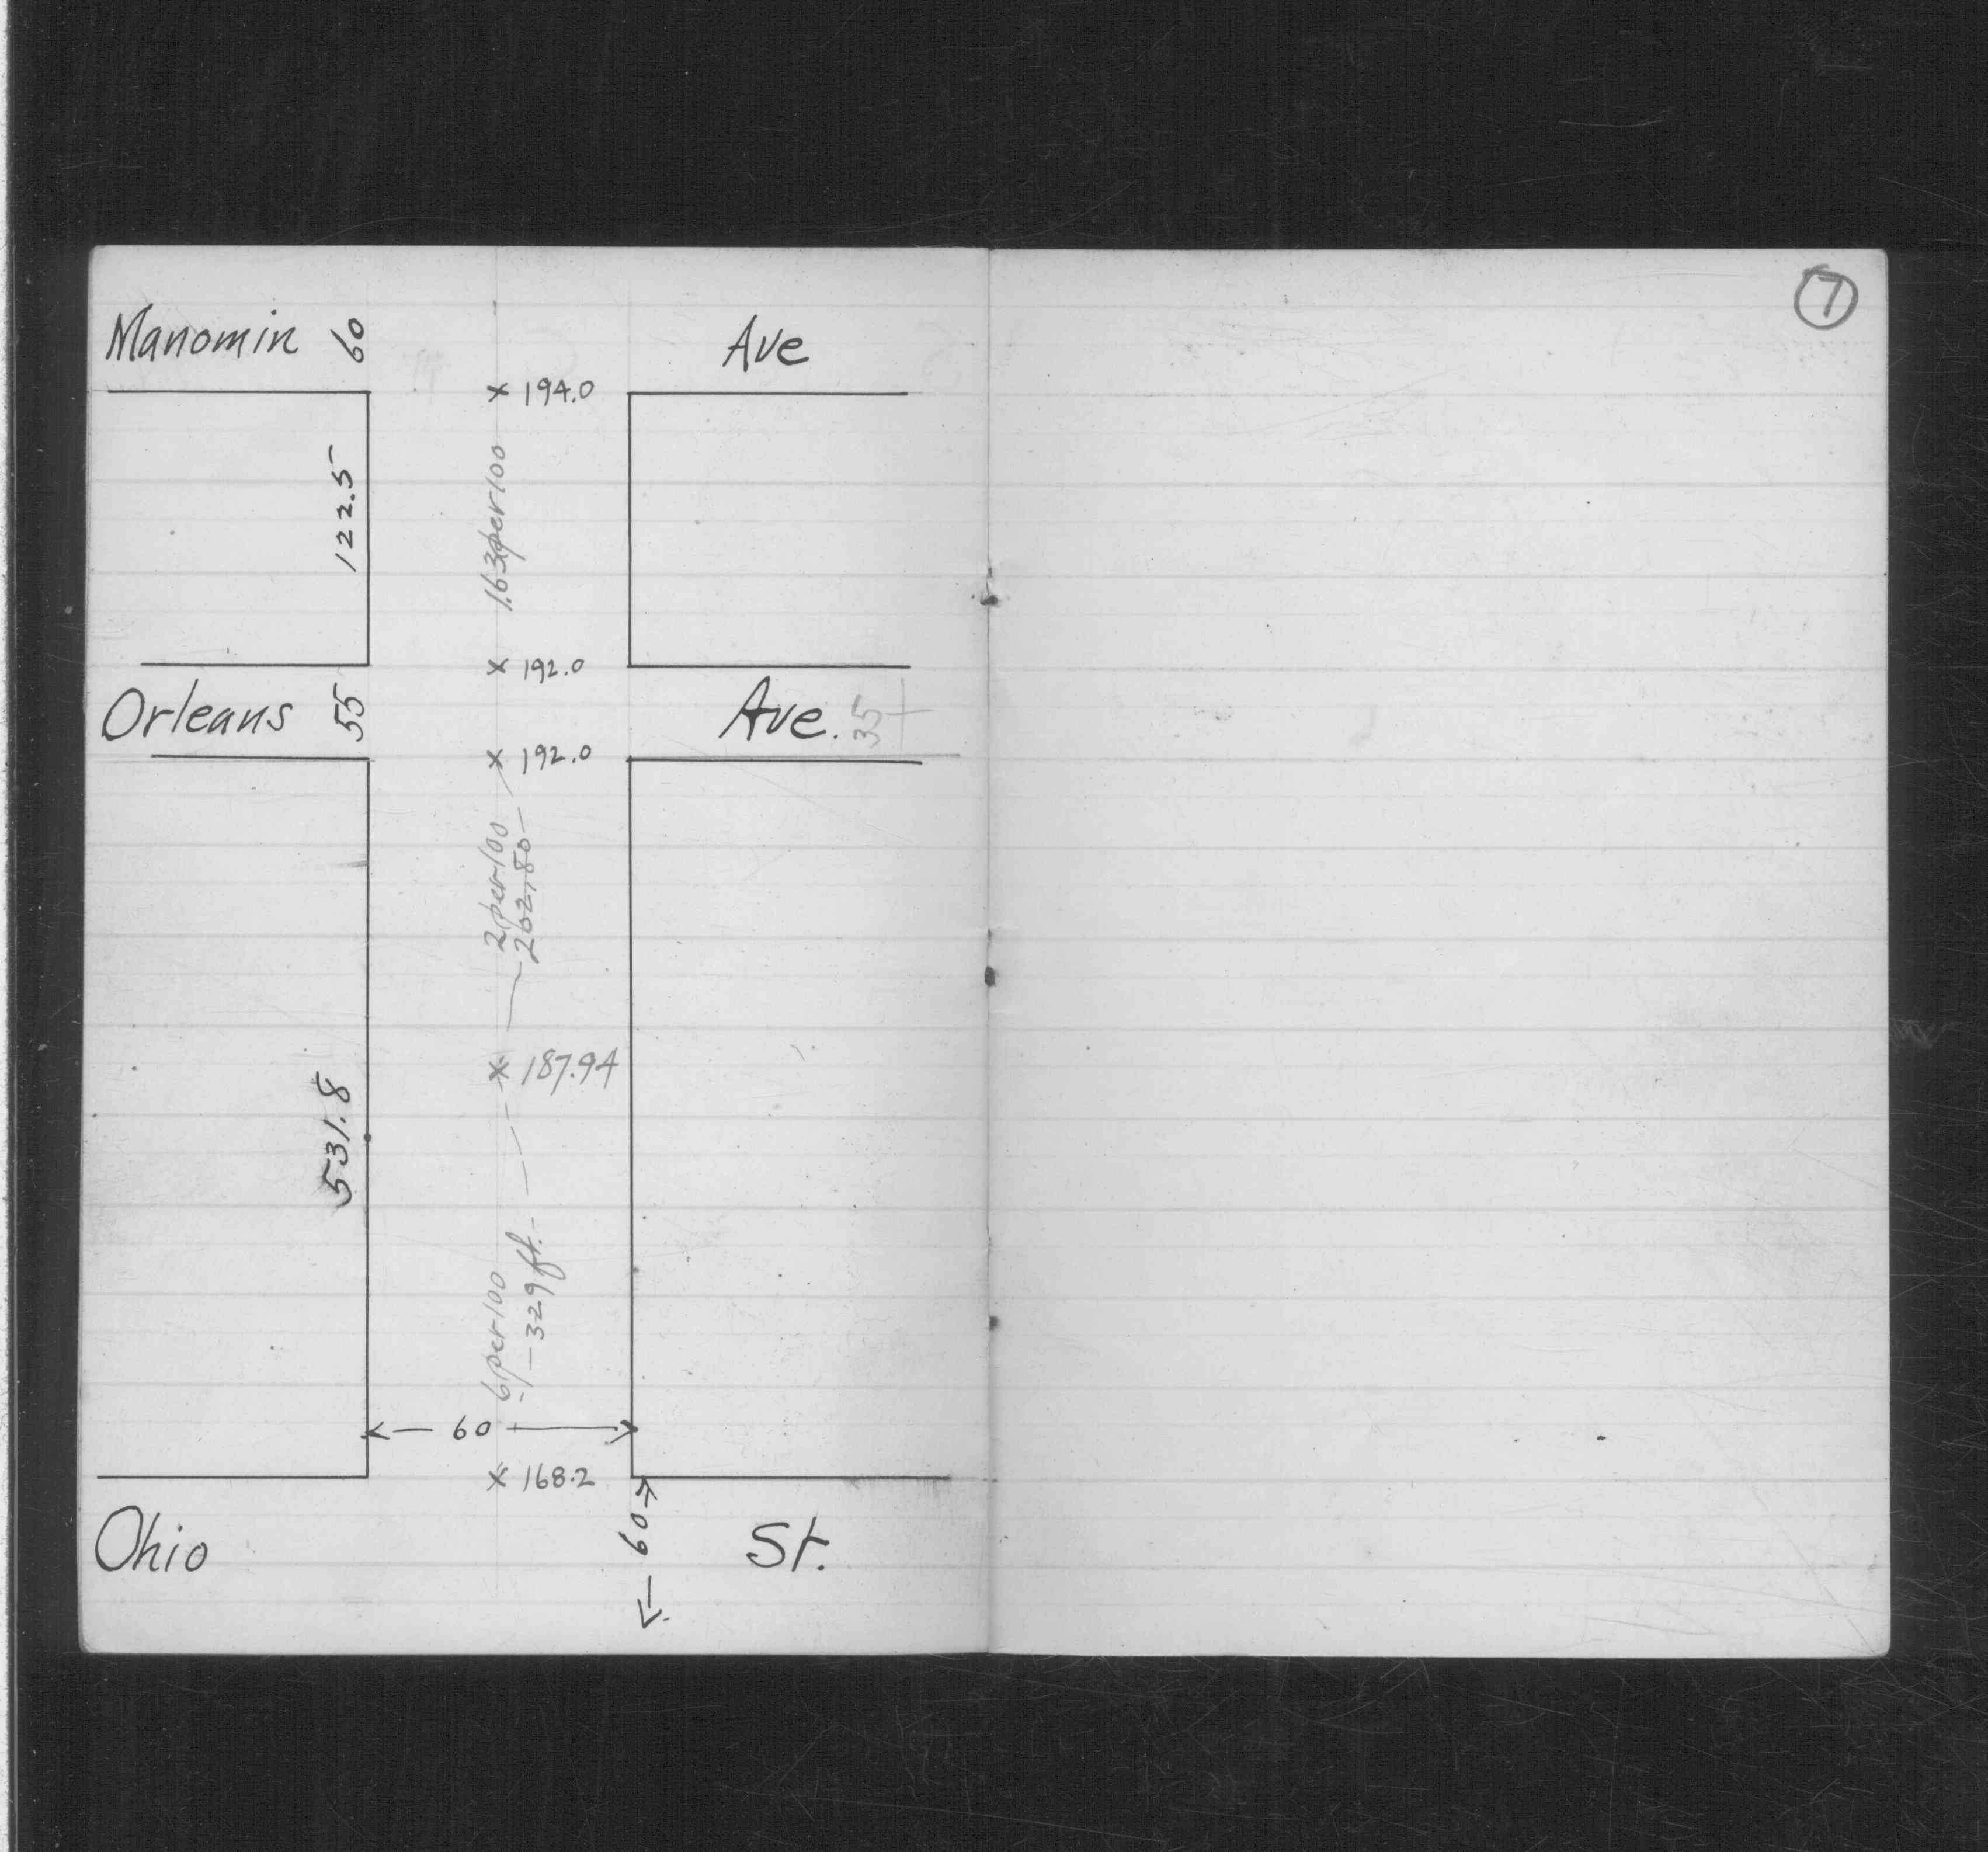 7
Manomin 60 Ave
x 194.0
122.5
1.63 per 100
x 192.0
Orleans 55 Ave. 35
x 192.0
2 per 100
202.80
x 187.94
531.8
6 per 100
329 ft.
60
x 168.2
Ohio 60 St.